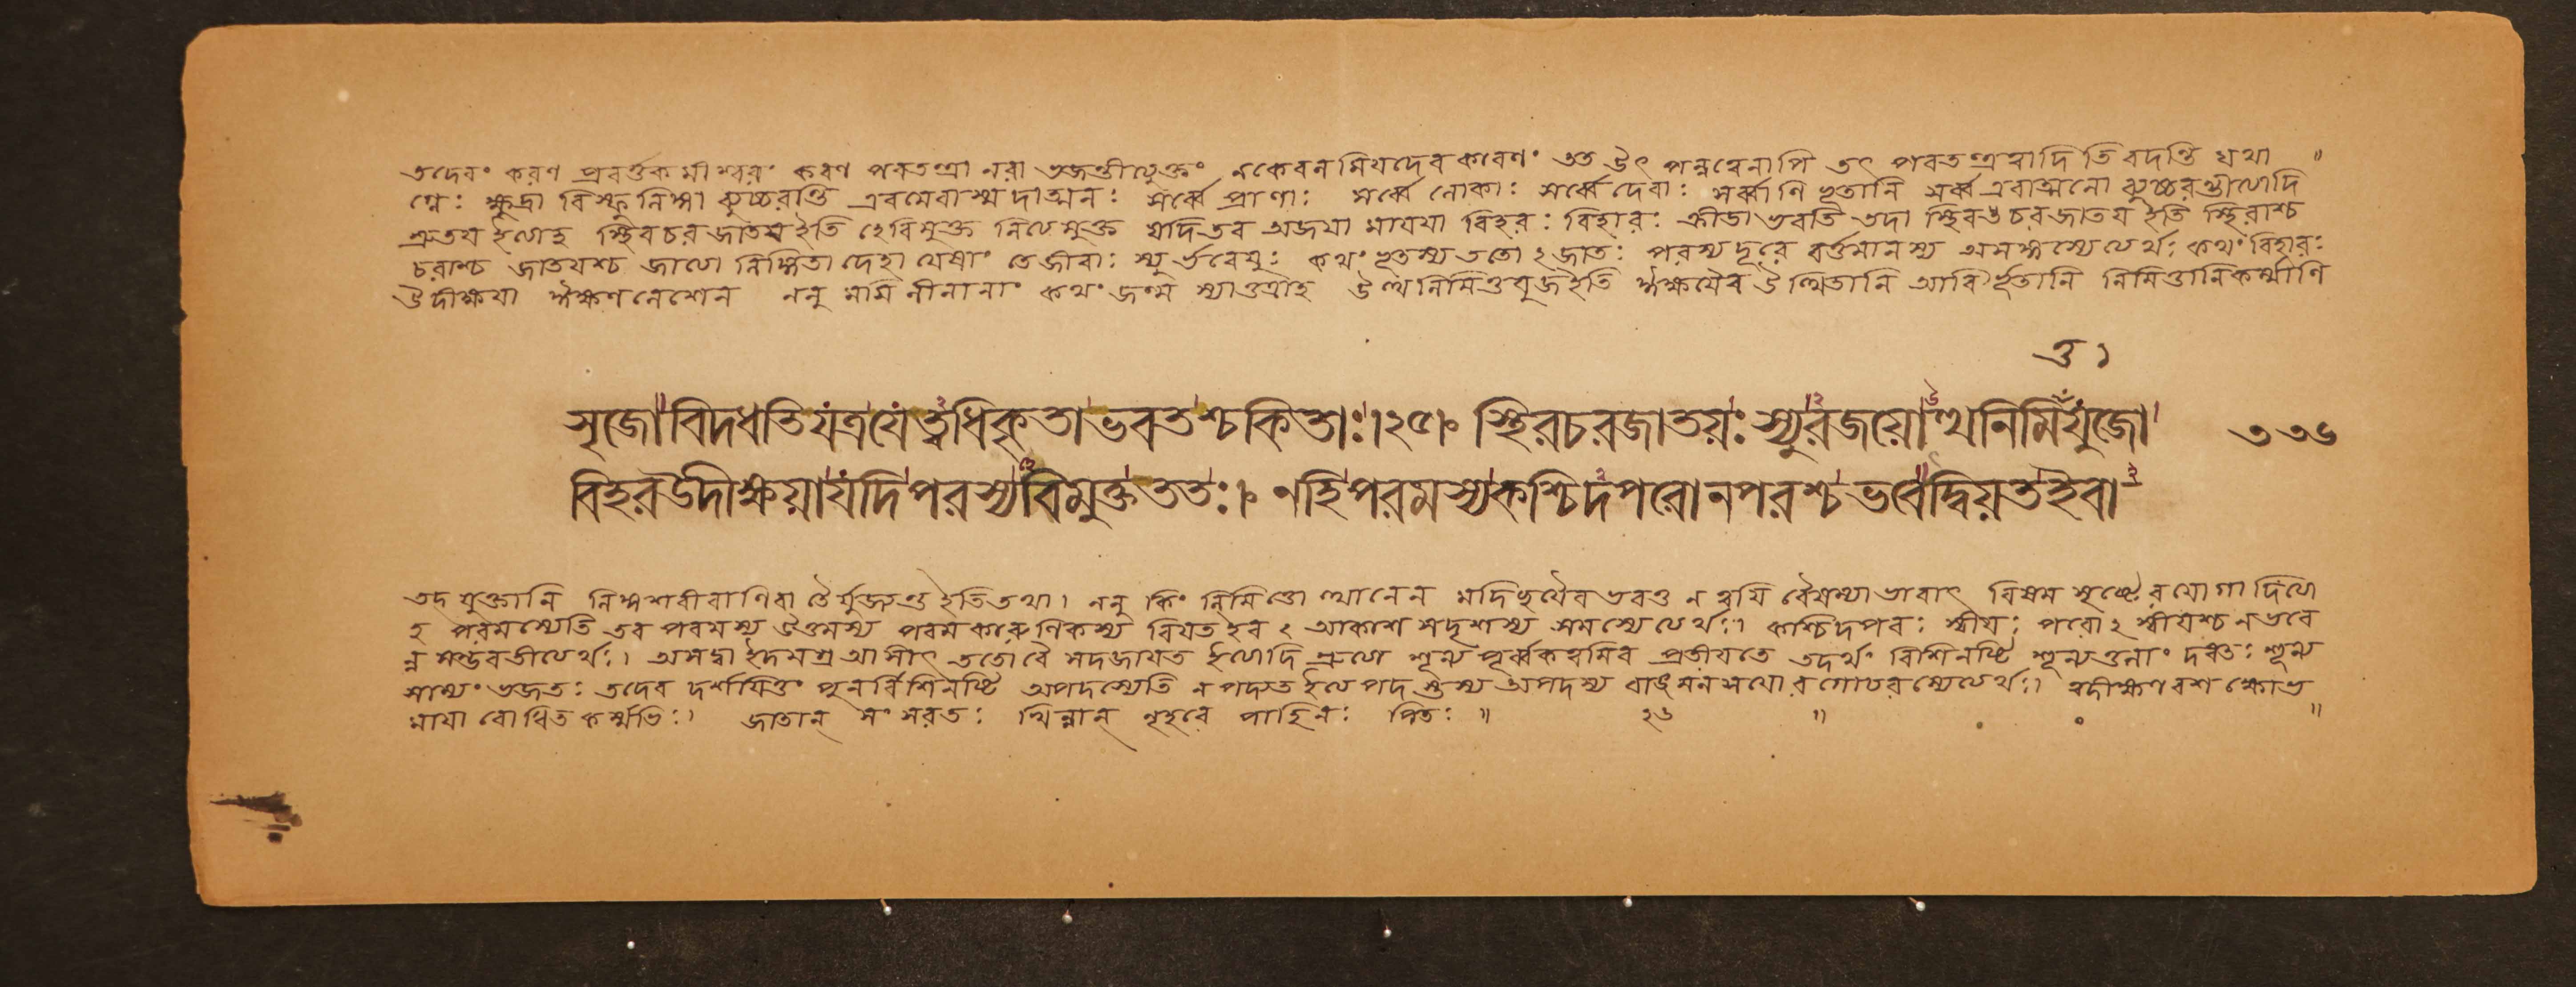 তদেবং করণ প্রবর্ত্তকমীশ্বরং করণ পরতন্ত্রা নরা ভজন্তীত্যুক্তং ন কেবলমিয়দেব কারণং তত উৎপন্নত্বেনাপি তৎ পরতন্ত্রত্বাদিতি বদন্তি যথা ॥
গ্নেঃ ক্ষুদ্রা বিস্ফুলিঙ্গা ব্যুচ্চরন্তি এবমেবাস্মাদাত্মনঃ সর্ব্বে প্রাণাঃ সর্ব্বে লোকাঃ সর্ব্বে দেবাঃ সর্ব্বাণি ভূতানি সর্ব্ব এবাত্মনো ব্যুচ্চরন্তীত্যাদি
শ্রুতয় ইত্যাহ স্থিরচরজাতয় ইতি হে বিমুক্ত নিত্যমুক্ত যদি তব অজয়া মায়য়া বিহরঃ বিহারঃ ক্রীড়া ভবতি তদা স্থিরচরজাতয় ইতি স্থিরাশ্চ
চরাশ্চ জাতয়শ্চ জাত্যো লিঙ্গিতা দেহা যেষাং তে জীবাঃ স্যুর্ভবেয়ুঃ কথং ভূতস্য ততো ২ জাতঃ পরস্য দূরে বর্ত্তমানস্য অসঙ্গস্যেত্যর্থঃ কথং বিহারঃ
উদীক্ষয়া ঈক্ষণলেশেন ননু ময়ি লীনানাং কথং জন্ম স্যাত্তত্রাহ উত্থনিমিত্তযুজ ইতি ঈক্ষয়ৈব উত্থিতানি আবির্ভূতানি নিমিত্তানি কর্ম্মাণি
ত্ত ১
সৃজো বিদধতি যত্র যে ত্বধিকৃতা ভবতশ্চকিতাঃ ।২৫। স্থিরচরজাতয়ঃ স্যুরজয়োত্থনিমিযুজো ৩৩৬
বিহর উদীক্ষয়া যদি পরস্য বিমুক্ত ততঃ । ণহি পরমস্য কশ্চিদপরো ন পরশ্চ ভবেদ্বিয়ত ইবা
তদ্ যুক্তানি লিঙ্গশরীরাণি বা তৈর্যুজ্যন্ত ইতি তথা। ননু কিং নিমিত্তোত্থানেন মদিচ্ছয়ৈব ভবন্তু ন ত্বয়ি বৈষম্যাভাবাৎ বিষম সৃষ্টেরযোগাদিত্যা
হ পরমস্যেতি তব পরমস্য উত্তমস্য পরম কারুণিকস্য বিয়ত ইব ২ আকাশ সদৃশস্য সমস্যেত্যর্থঃ। কশ্চিদপরঃ স্বীয়ঃ পরো ২ স্বীয়শ্চ ন ভবে
ন্ন সম্ভবতীত্যর্থঃ। অসদ্বা ইদমগ্র আসীৎ ততো বৈ সদজায়ত ইত্যাদি শ্রুত্যা শূন্য পূর্ব্বকত্বমিব প্রতীয়তে তদর্থং বিশিনষ্টি শূন্যতুলাং দধতঃ শূন্য
সাম্যং ভজতঃ তদেব দর্শয়িতুং পুনর্বিশিনষ্টি অপদস্যেতি ন পদ্যত ইত্যপদস্তস্য অপদস্য বাঙ্মনসয়োরগোচরস্যেত্যর্থঃ। ত্বদীক্ষণ বশ ক্ষোভ
মায়া বোধিত কর্ম্মভিঃ। জাতান্ সংসরতঃ খিন্নান্ নৃহরে পাহি নঃ পিতঃ ॥ ২৬ ॥ ০ ॥